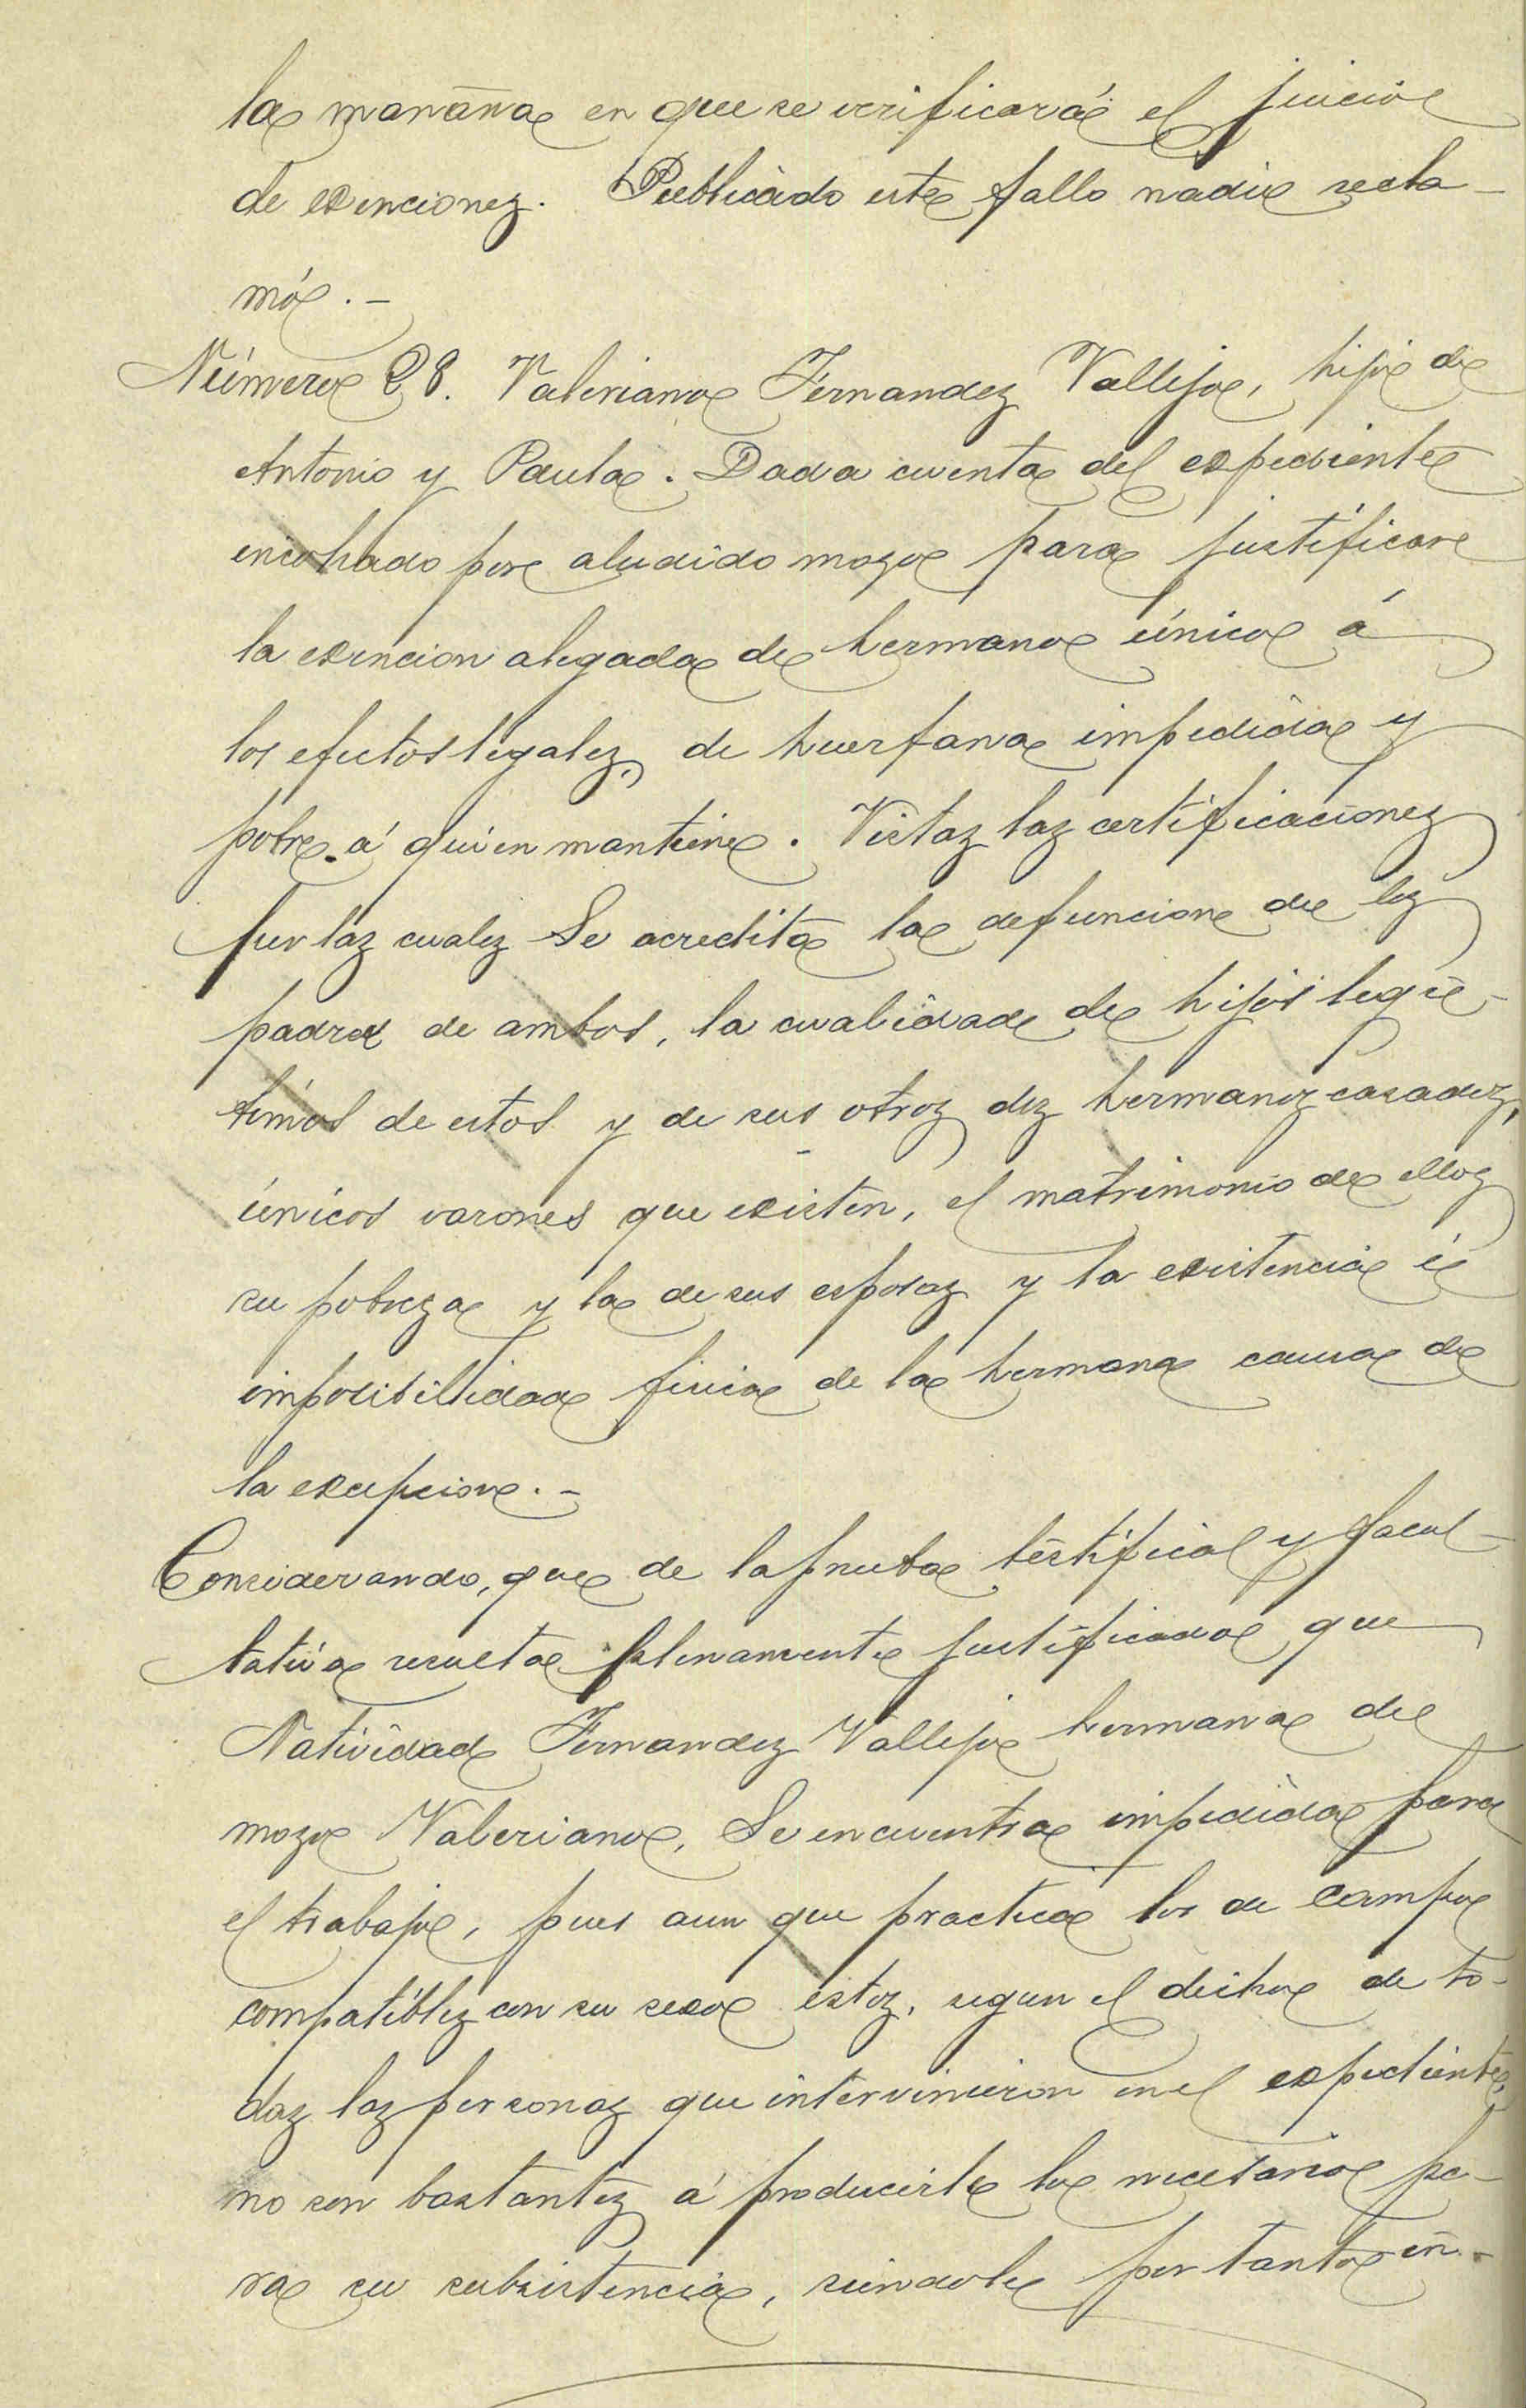 la mañana en que se verificará el juicio
de exenciones. Publicado este fallo nadie recla-
mó.-
Número 28. Valeriano Fernandez Vallejo, hijo de
Antonio y Paula. Dada cuenta del expediente
incohado por aludido mozo para justificar
la exencion alegada de hermano único á
los efectos legales, de huerfana impedida y
pobre á quien mantiene. Vistas las certificaciones
por las cuales se acredita la defuncion de los
padres de ambos, la cualidad de hijos legi-
timos de estos y de sus otros dos hermanos casados,
únicos varones que existen, el matrimonio de ellos
su pobreza y la de sus esposas y la existencia é
imposibilidad fisica de la hermana causa de
la excepcion.-
Considerando, que de la prueba testifical y facul-
tativa resulta plenamente justificado que
Natividad Fernandez Vallejo hermana del
mozo Valeriano, se encuentra impedida para
el trabajo, pues aun que practica los de campo
compatibles con su sexo estos, segun el dicho de to-
das las personas que intervinieron en el expediente,
no son bastantes á producirle lo necesario pa-
ra su subsistencia, siendole por tanto in-